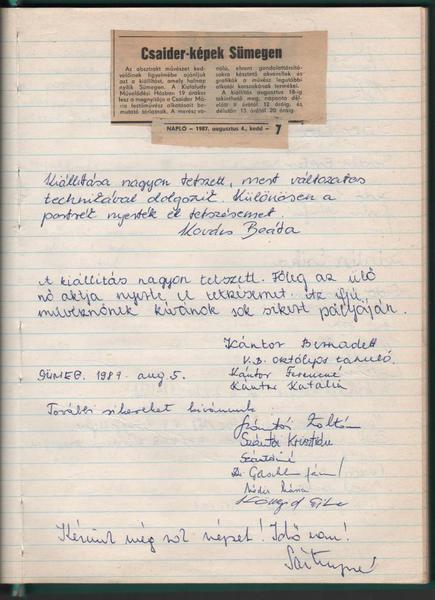 Csaider-képek Sümegen
Az absztrakt művészet ked-
velőinek figyelmébe ajánljuk
azt a kiállítást, amely holnap
nyílik Sümegen. A Kisfaludy
Művelődési Házban 19 órakor
lesz a megnyitója a Csaider Má-
ria festőművész alkotásait be-
mutató tárlatnak. A merész vo-
nalú, elvont gondolattársítá-
sokra késztető akvarellek és
grafikák a művész legutóbbi
alkotói korszakának termékei.
A kiállítás augusztus 18-ig
tekinthető meg, naponta dél-
előtt 9 órától 12 óráig, és
délután 15 órától 20 óráig.
NAPLÓ – 1987. augusztus 4., kedd – 7
Kiállítása nagyon tetszett, mert változatos
technikával dolgozik. Különösen a
portrék nyerték el tetszésemet.
Kovács Beáta
A kiállítás nagyon tetszett. Főleg az ülő
nő aktja nyerte el tetszésemet. Az ifjú
művésznőnek kívánok sok sikert pályáján.
Kántor Bernadett
V.B. osztályos tanuló.
SÜMEG. 1987. aug 5.
Kántor Ferencné
Kántor Katalin
További sikereket kívánunk
Szántói Zoltán
Szántói Krisztián
Szántóiné
Dr.
Mária
Kérünk még sok képet! Idő van!